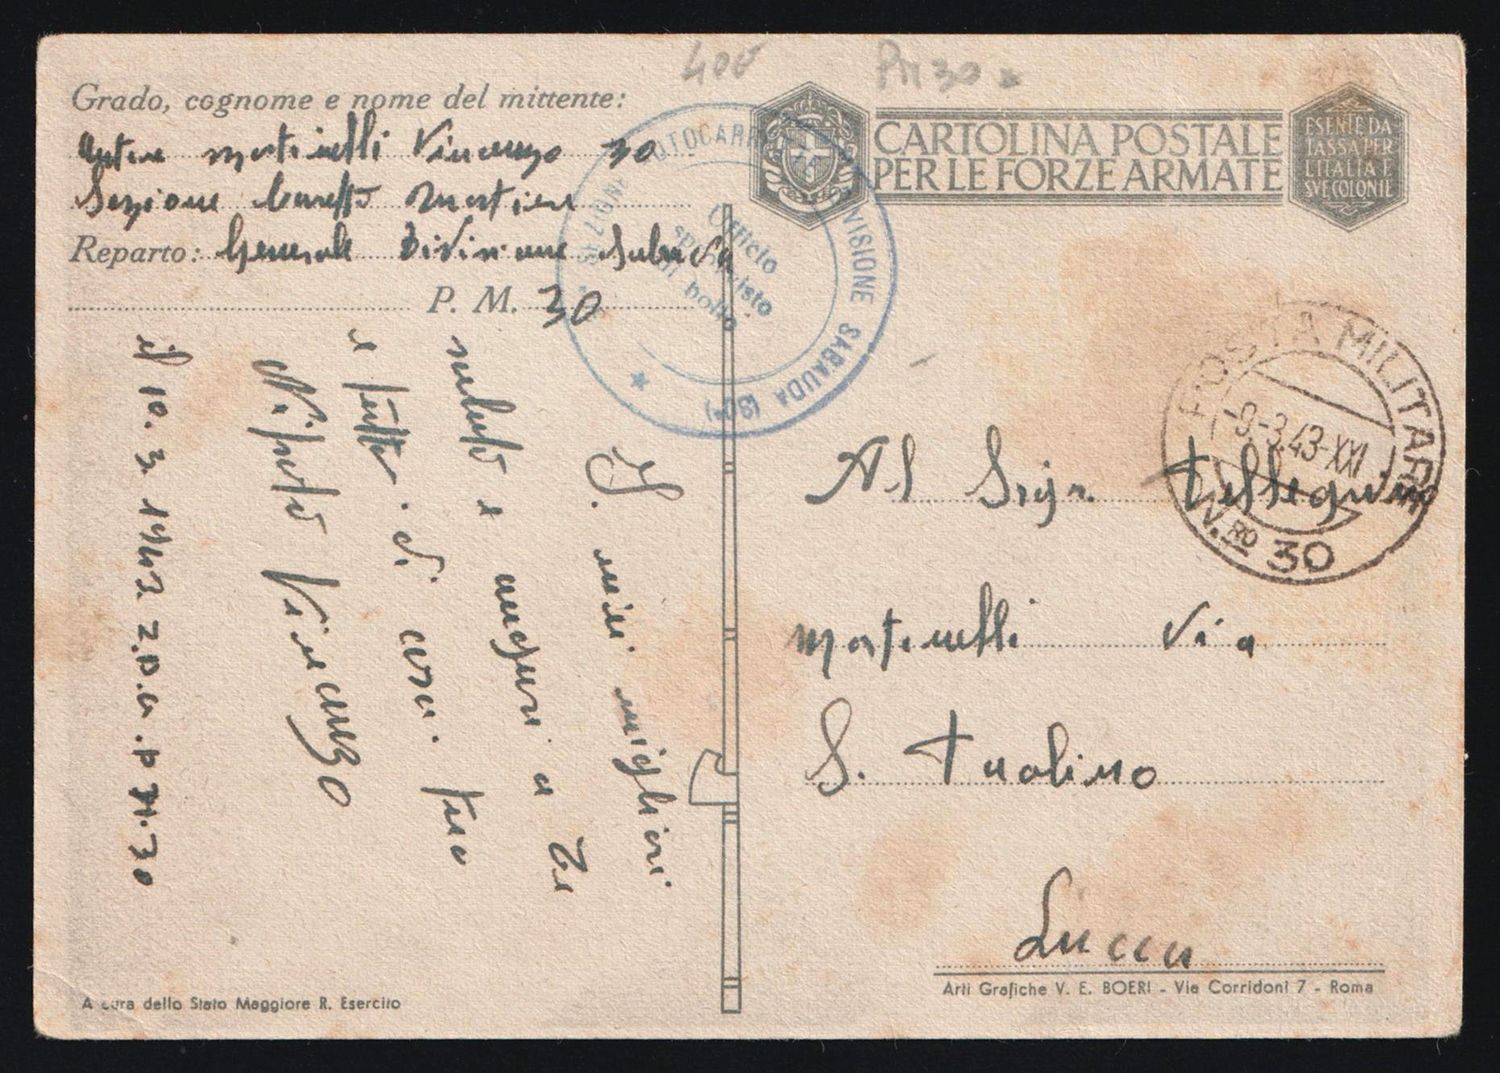 400
PM 30
Grado, cognome e nome del mittente:
Martinelli Vincenzo 30
Sezione
Reparto: Generale Divisione Sabuda
P. M. 30
CARTOLINA POSTALE
PER LE FORZE ARMATE
ESENTE DA
TASSA PER
L'ITALIA E
SVE COLONIE
DIVISIONE SABAUDA (30ª)
Ufficio
sprovvisto
di bollo
POSTA MILITARE
-9-3.43-XXI
N.RO 30
I miei migliori
saluti e auguri a Te
e tutti di casa. tuo
Nipote Vincenzo
il 10. 3 1943 Z.O. P.M. 30
Al Sign.
Martinelli Via
S.
Lucca
A cura dello Stato Maggiore R. Esercito
Arti Grafiche V. E. BOERI - Via Corridoni 7 - Roma